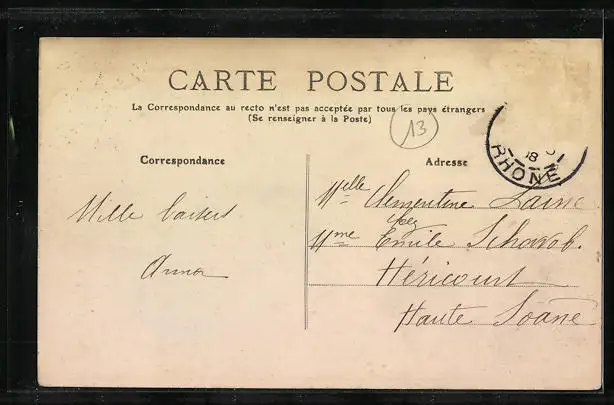 CARTE POSTALE
La Correspondance au recto n'est pas acceptée par tous les pays étrangers
(Se renseigner à la Poste)
13
RHÔNE
08
Correspondance
Adresse
Mille baisers
Anna
Melle Clementine Laine
chez
Mme Emile Schwob.
Héricourt
Haute Soane